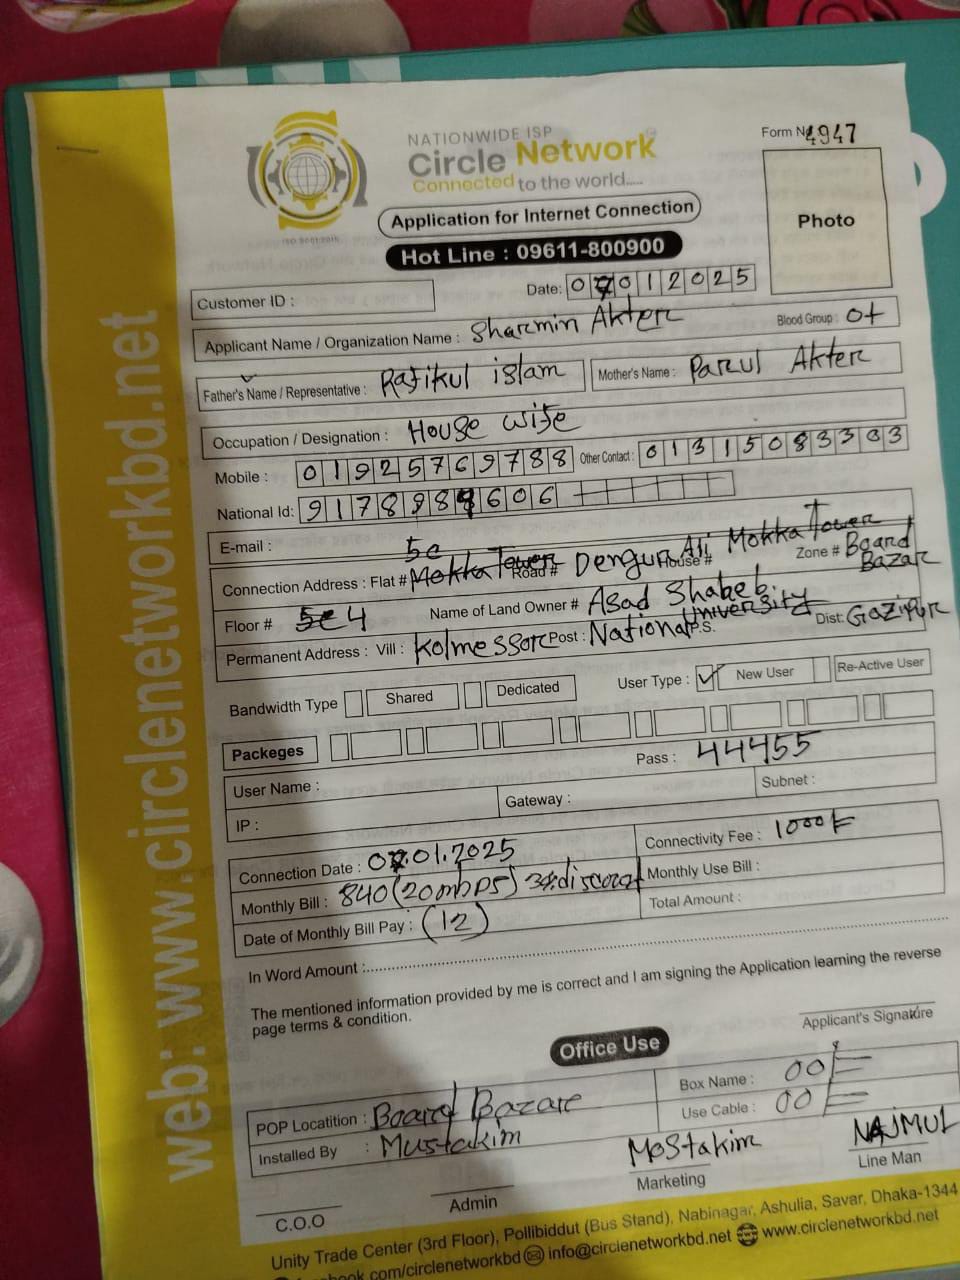 NATIONWIDE ISP
Circle Network
Connected to the world.....
Form No 4947
Application for Internet Connection
Hot Line : 09611-800900
Photo
ISO 9001:2015
Customer ID :
Date: 07012025
Applicant Name / Organization Name : Sharmin Akter
Blood Group : O+
Father's Name / Representative : Rafikul islam
Mother's Name : Parul Akter
Occupation / Designation : House wife
Mobile : 01925769788
Other Contact : 01315083303
National Id: 9178984606
E-mail :
Connection Address : Flat # 5c Road # Dengur Ali House # Mokka Tower Zone # Board Bazar
Floor # 4 Name of Land Owner # Asad Shaheb
Permanent Address : Vill : Kolmessor Post : National University P.S. Dist: Gazipur
Bandwidth Type Shared Dedicated User Type : ✓ New User Re-Active User
Packeges
User Name : Pass : 44455
IP : Gateway : Subnet :
Connection Date : 07.01.2025 Connectivity Fee : 1000
Monthly Bill : 840 (20mbps) Monthly Use Bill :
Date of Monthly Bill Pay : (12) Total Amount :
In Word Amount :
The mentioned information provided by me is correct and I am signing the Application learning the reverse
page terms & condition.
Applicant's Signature
Office Use
POP Locatition : Board Bazar Box Name : 00
Installed By : Mustakim Use Cable : 00
Mostakim NAJMUL
C.O.O Admin Marketing Line Man
Unity Trade Center (3rd Floor), Pollibiddut (Bus Stand), Nabinagar, Ashulia, Savar, Dhaka-1344
book.com/circlenetworkbd info@circlenetworkbd.net www.circlenetworkbd.net
web: www.circlenetworkbd.net